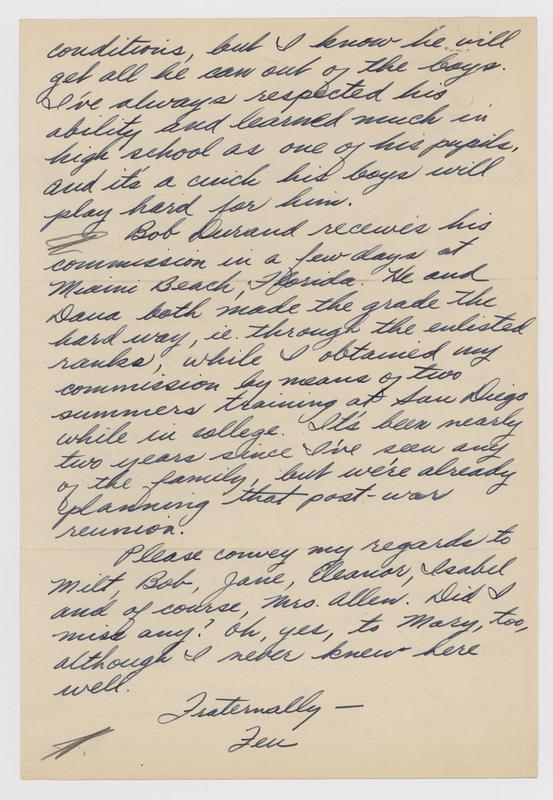 conditions, but I know he will
get all he can out of the boys.
I've always respected his
ability and learned much in
high school as one of his pupils,
and it's a cinch his boys will
play hard for him.
Bob Durand receives his
commission in a few days at
Miami Beach, Florida. He and
Dana both made the grade the
hard way, ie. through the enlisted
ranks, while I obtained my
commission by means of two
summers training at San Diego
while in college. It's been nearly
two years since I've seen any
of the family, but we're already
planning that post-war
reunion.
Please convey my regards to
Milt, Bob, Jane, Eleanor, Isabel
and of course, Mrs. Allen. Did I
miss any? Oh, yes, to Mary, too,
although I never knew here
well.
Fraternally —